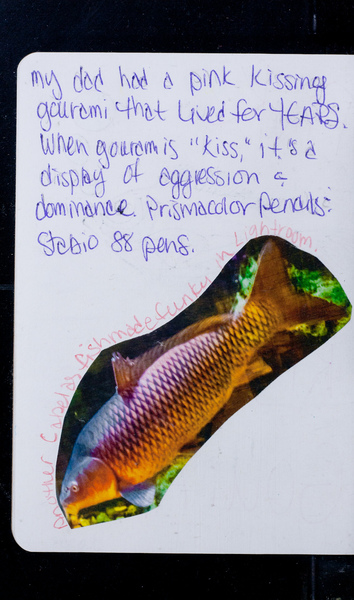 my dad had a pink kissing
gourami that lived for YEARS.
When gouramis "kiss," it's a
display of aggression &
dominance. Prismacolor pencils &
Stabilo 88 pens.
another Cabelas fish made funky in Lightroom.